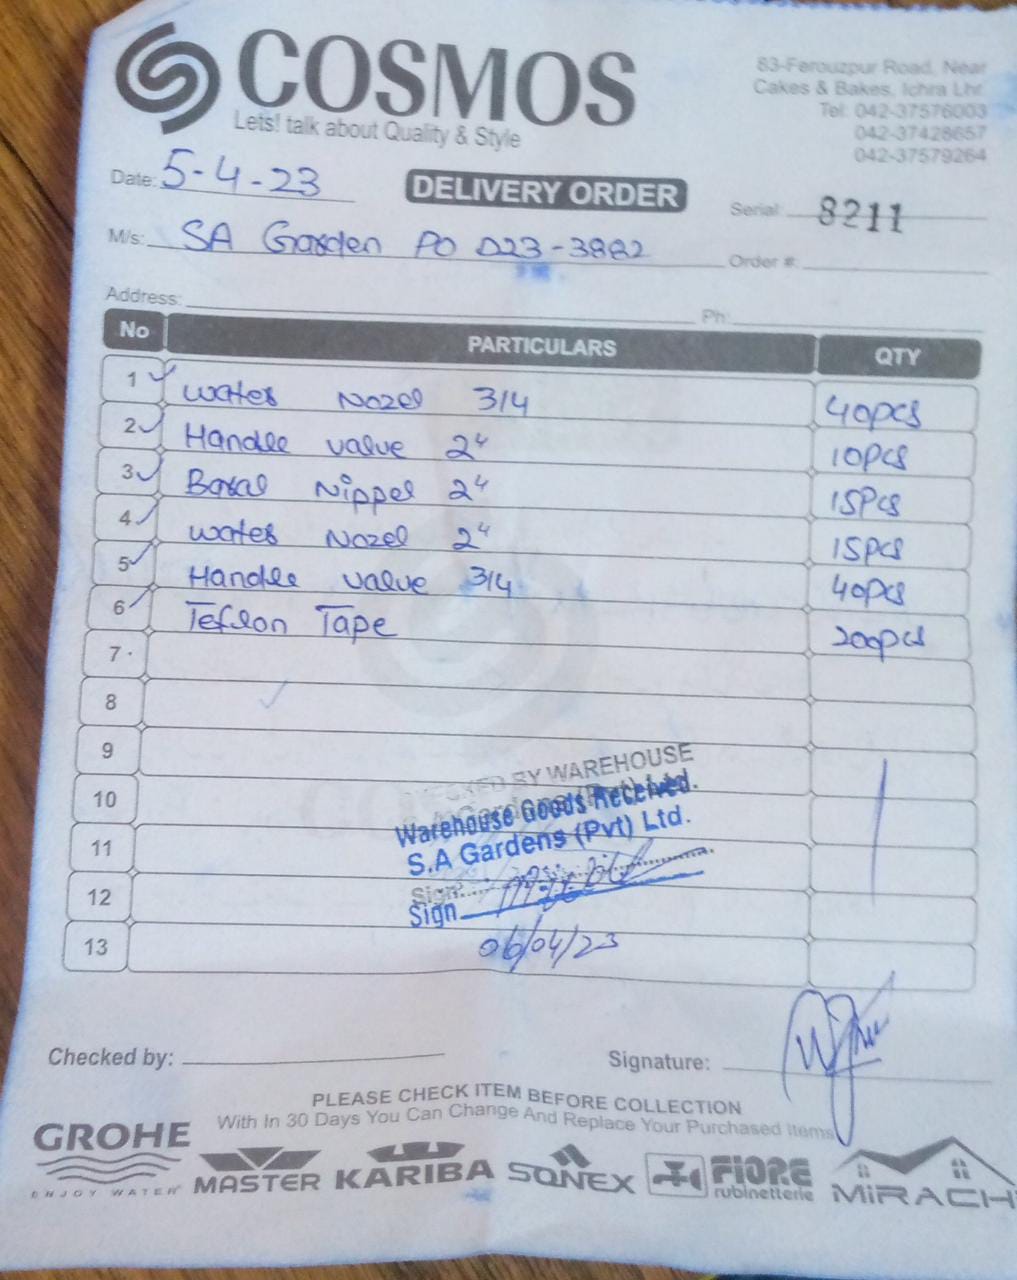 COSMOS
Lets! talk about Quality & Style
83-Ferouzpur Road, Near
Cakes & Bakes, Ichra Lhr.
Tel: 042-37576003
042-37428657
042-37579264
Date: 5-4-23
DELIVERY ORDER
Serial 8211
M/s: SA Garden PO 023-3882
Order #:
Address:
Ph:
No PARTICULARS QTY
1 Water Nozel 3/4 40pcs
2 Handle value 2" 10pcs
3 Baral Nippel 2" 15Pcs
4 water Nozel 2" 15pcs
5 Handle value 3/4 40pcs
6 Teflon Tape 200pcs
7
8
9
10
11
12
13
BY WAREHOUSE
Warehouse Goods Received.
S.A Gardens (Pvt) Ltd.
Sign
Sign
06/04/23
Checked by:
Signature:
PLEASE CHECK ITEM BEFORE COLLECTION
With In 30 Days You Can Change And Replace Your Purchased Items
GROHE
ENJOY WATER
MASTER
KARIBA
SONEX
FIORE
rubinetterie
MIRACH